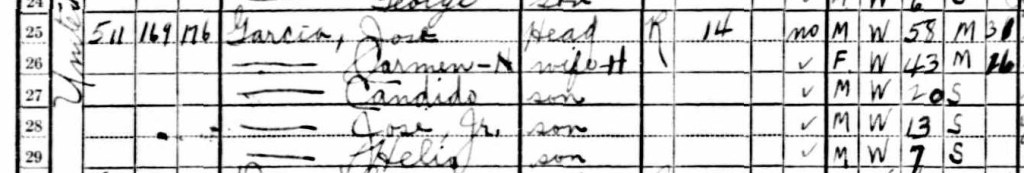 24 George son ✓ M W 6 S
25 511 169 176 Garcia, Jose Head R 14 no M W 58 M 31
26 —— Carmen-H wife-H ✓ F W 43 M 16
27 —— Candido son ✓ M W 20 S
28 —— Jose, Jr. son ✓ M W 13 S
29 —— Helio son ✓ M W 7 S